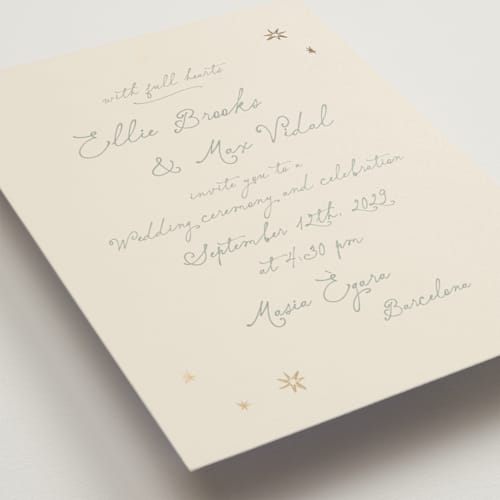 with full hearts
Ellie Brooks
& Max Vidal
invite you to a
Wedding ceremony and celebration
September 12th, 2029
at 4:30 pm
Masia Ègara
Barcelona